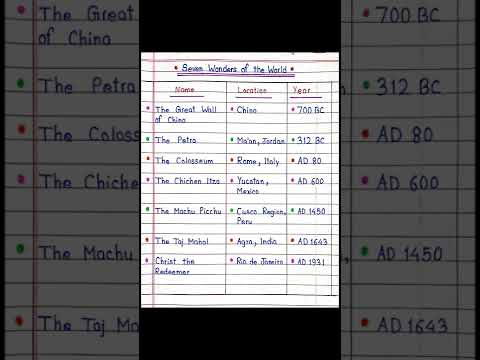 The Great
of China
The Petra
The Colosse
The Chichen
The Machu
The Taj Ma
Seven Wonders of the World
Name Location Year
The Great Wall China 700 BC
of China
The Petra Ma'an, Jordan 312 BC
The Colosseum Rome, Italy AD 80
The Chichen Itza Yucatan, AD 600
Mexico
The Machu Picchu Cusco Region, AD 1450
Peru
The Taj Mahal Agra, India AD 1643
Christ the Rio de Janeiro AD 1931
Redeemer
700 BC
312 BC
AD 80
AD 600
AD 1450
AD 1643